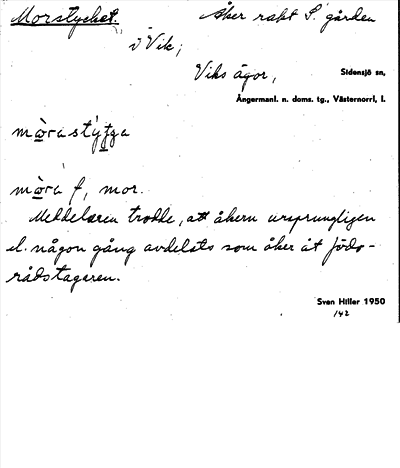 Morstycket. Åker rakt S. gården
i Vik;
Viks ägor, Sidensjö sn,
Ångermanl. n. doms. tg., Västernorrl, l.
mòra f, mor.
Meddelaren trodde, att åkern ursprungligen
el. någon gång avdelats som åker åt födo-
rådstagaren.
Sven Hiller 1950
142